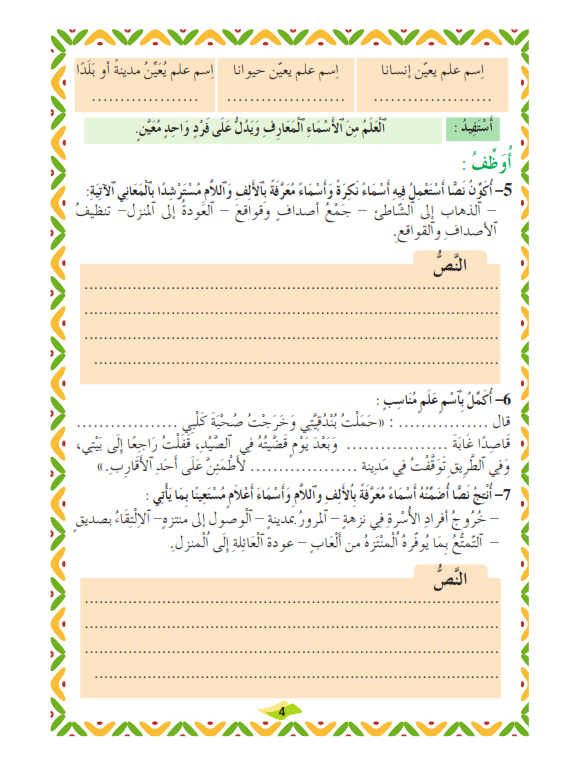 اِسم علم يعيّن إنسانا اِسم علم يعيّن حيوانا اِسم علم يُعَيِّنُ مدينةً أو بَلَدًا
................... ................... ...................
أَسْتَفِيدُ : اَلْعَلَمُ مِنَ ٱلْأَسْمَاءِ ٱلْمَعَارِفِ وَيَدُلُّ عَلَى فَرْدٍ وَاحِدٍ مُعَيَّنٍ.
أُوَظِّفُ :
5– أُكَوِّنُ نَصًّا أَسْتَعْمِلُ فِيهِ أَسْمَاءً نَكِرَةً وَأَسْمَاءً مُعَرَّفَةً بِٱلْأَلِفِ وَٱللاَّمِ مُسْتَرْشِدًا بِٱلْمَعَانِي ٱلآتِيَةِ:
– الذهاب إلى ٱلشّاطئ – جَمْعُ أصدافٍ وَقواقعَ – ٱلعَودةُ إلى المنزل– تنظيفُ
ٱلأصدافِ وٱلقواقعِ.
النَّصُّ
................................................................
................................................................
................................................................
................................................................
6– أُكَمِّلُ بِٱسْمِ عَلَمٍ مُنَاسِبٍ :
قال ................ : «حَمَلْتُ بُنْدُقِيَّتِي وَخَرَجْتُ صُحْبَةَ كَلْبِي ..................
قَاصِدًا غَابَةَ .................. وَبَعْدَ يَوْمٍ قَضَّيْتُهُ فِي ٱلصَّيْدِ، قَفَلْتُ رَاجِعًا إِلَى بَيْتِي،
وَفِي ٱلطَّرِيقِ تَوَقَّفْتُ فِي مَدِينَة .................. لأَطْمَئِنَّ عَلَى أَحَدِ ٱلْأَقَارِبِ.»
7– أُنْتِجُ نَصًّا أُضَمِّنُهُ أَسْمَاءً مُعَرَّفَةً بِٱلْأَلِفِ وَٱللاَّمِ وَأَسْمَاءَ أَعْلاَمٍ مُسْتَعِينًا بِمَا يَأْتِي :
– خُرُوجُ أفرادِ الأُسْرةِ فِي نزهةٍ – ٱلمرورُ بمدينةٍ – ٱلْوصول إلى منتزهٍ– الاِلْتِقَاءُ بصديقٍ
– ٱلتّمتُّعُ بِمَا يُوفّرهُ ٱلْمنْتَزهُ من أَلْعَابٍ – عودة ٱلْعَائِلةِ إِلَى ٱلْمنزل.
النَّصُّ
................................................................
................................................................
................................................................
................................................................
4